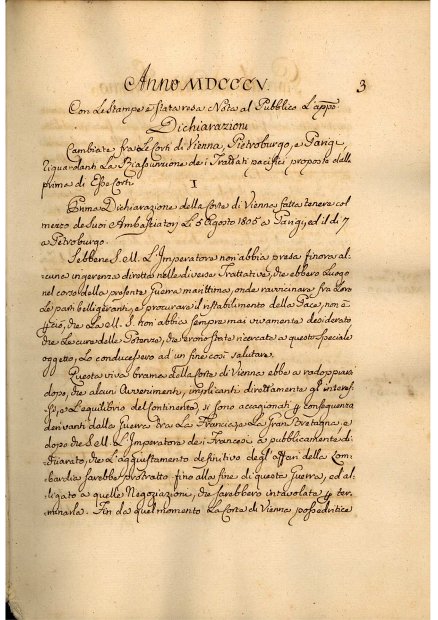 Anno MDCCCV.
3
Con le Stampe è stata resa Nota al Pubblico L'appo
Dichiarazioni
Cambiate fra le Corti di Vienna, Pietroburgo, e Parigi,
riguardanti La Riassunzione de i Trattati pacifici proposta dalle
prime di Esse Corti
I
Prima Dichiarazione della Corte di Vienna fatta tenere col
mezzo de Suoi Ambasciatorj Li 5 Agosto 1805 a Parigi, ed il dì 7
a Petroburgo.
Sebbene S. M. L'Imperatore non abbia presa finora al-
cuna ingerenza diretta nelle diverse Trattative, che ebbero Luogo
nel corso della presente Guerra marittima, onde ravvicinare fra Loro
Le parti belligeranti, e procurare il ristabilimento della Pace, non è
però, che La M. S. non abbia sempre mai vivamente desiderato
che Le cure delle Potenze, che erano state ricercate a questo speciale
oggetto, Lo conducessero ad un fine così salutare.
Questa viva brama della Corte di Vienna ebbe a radoppiarsi
dopo, che alcuni Avvenimenti, implicanti direttamente gl'interes-
si, e L'equilibrio del Continente, si sono accagionati p conseguenza
derivanti dalla Guerra tra La Francia, e La Gran Bretagna e
dopo che S. M. L'Imperatore de i Francesi à pubblicamente di-
chiarato, che L'aggiustamento definitivo degl'affari della Lom-
bardia sarebbe protratto fino alla fine di questa Guerra, ed al-
ligato a quelle Negoziazioni, che sarebbero intavolate p ter-
minarla. Fin da quel momento La Corte di Vienna posseditrice